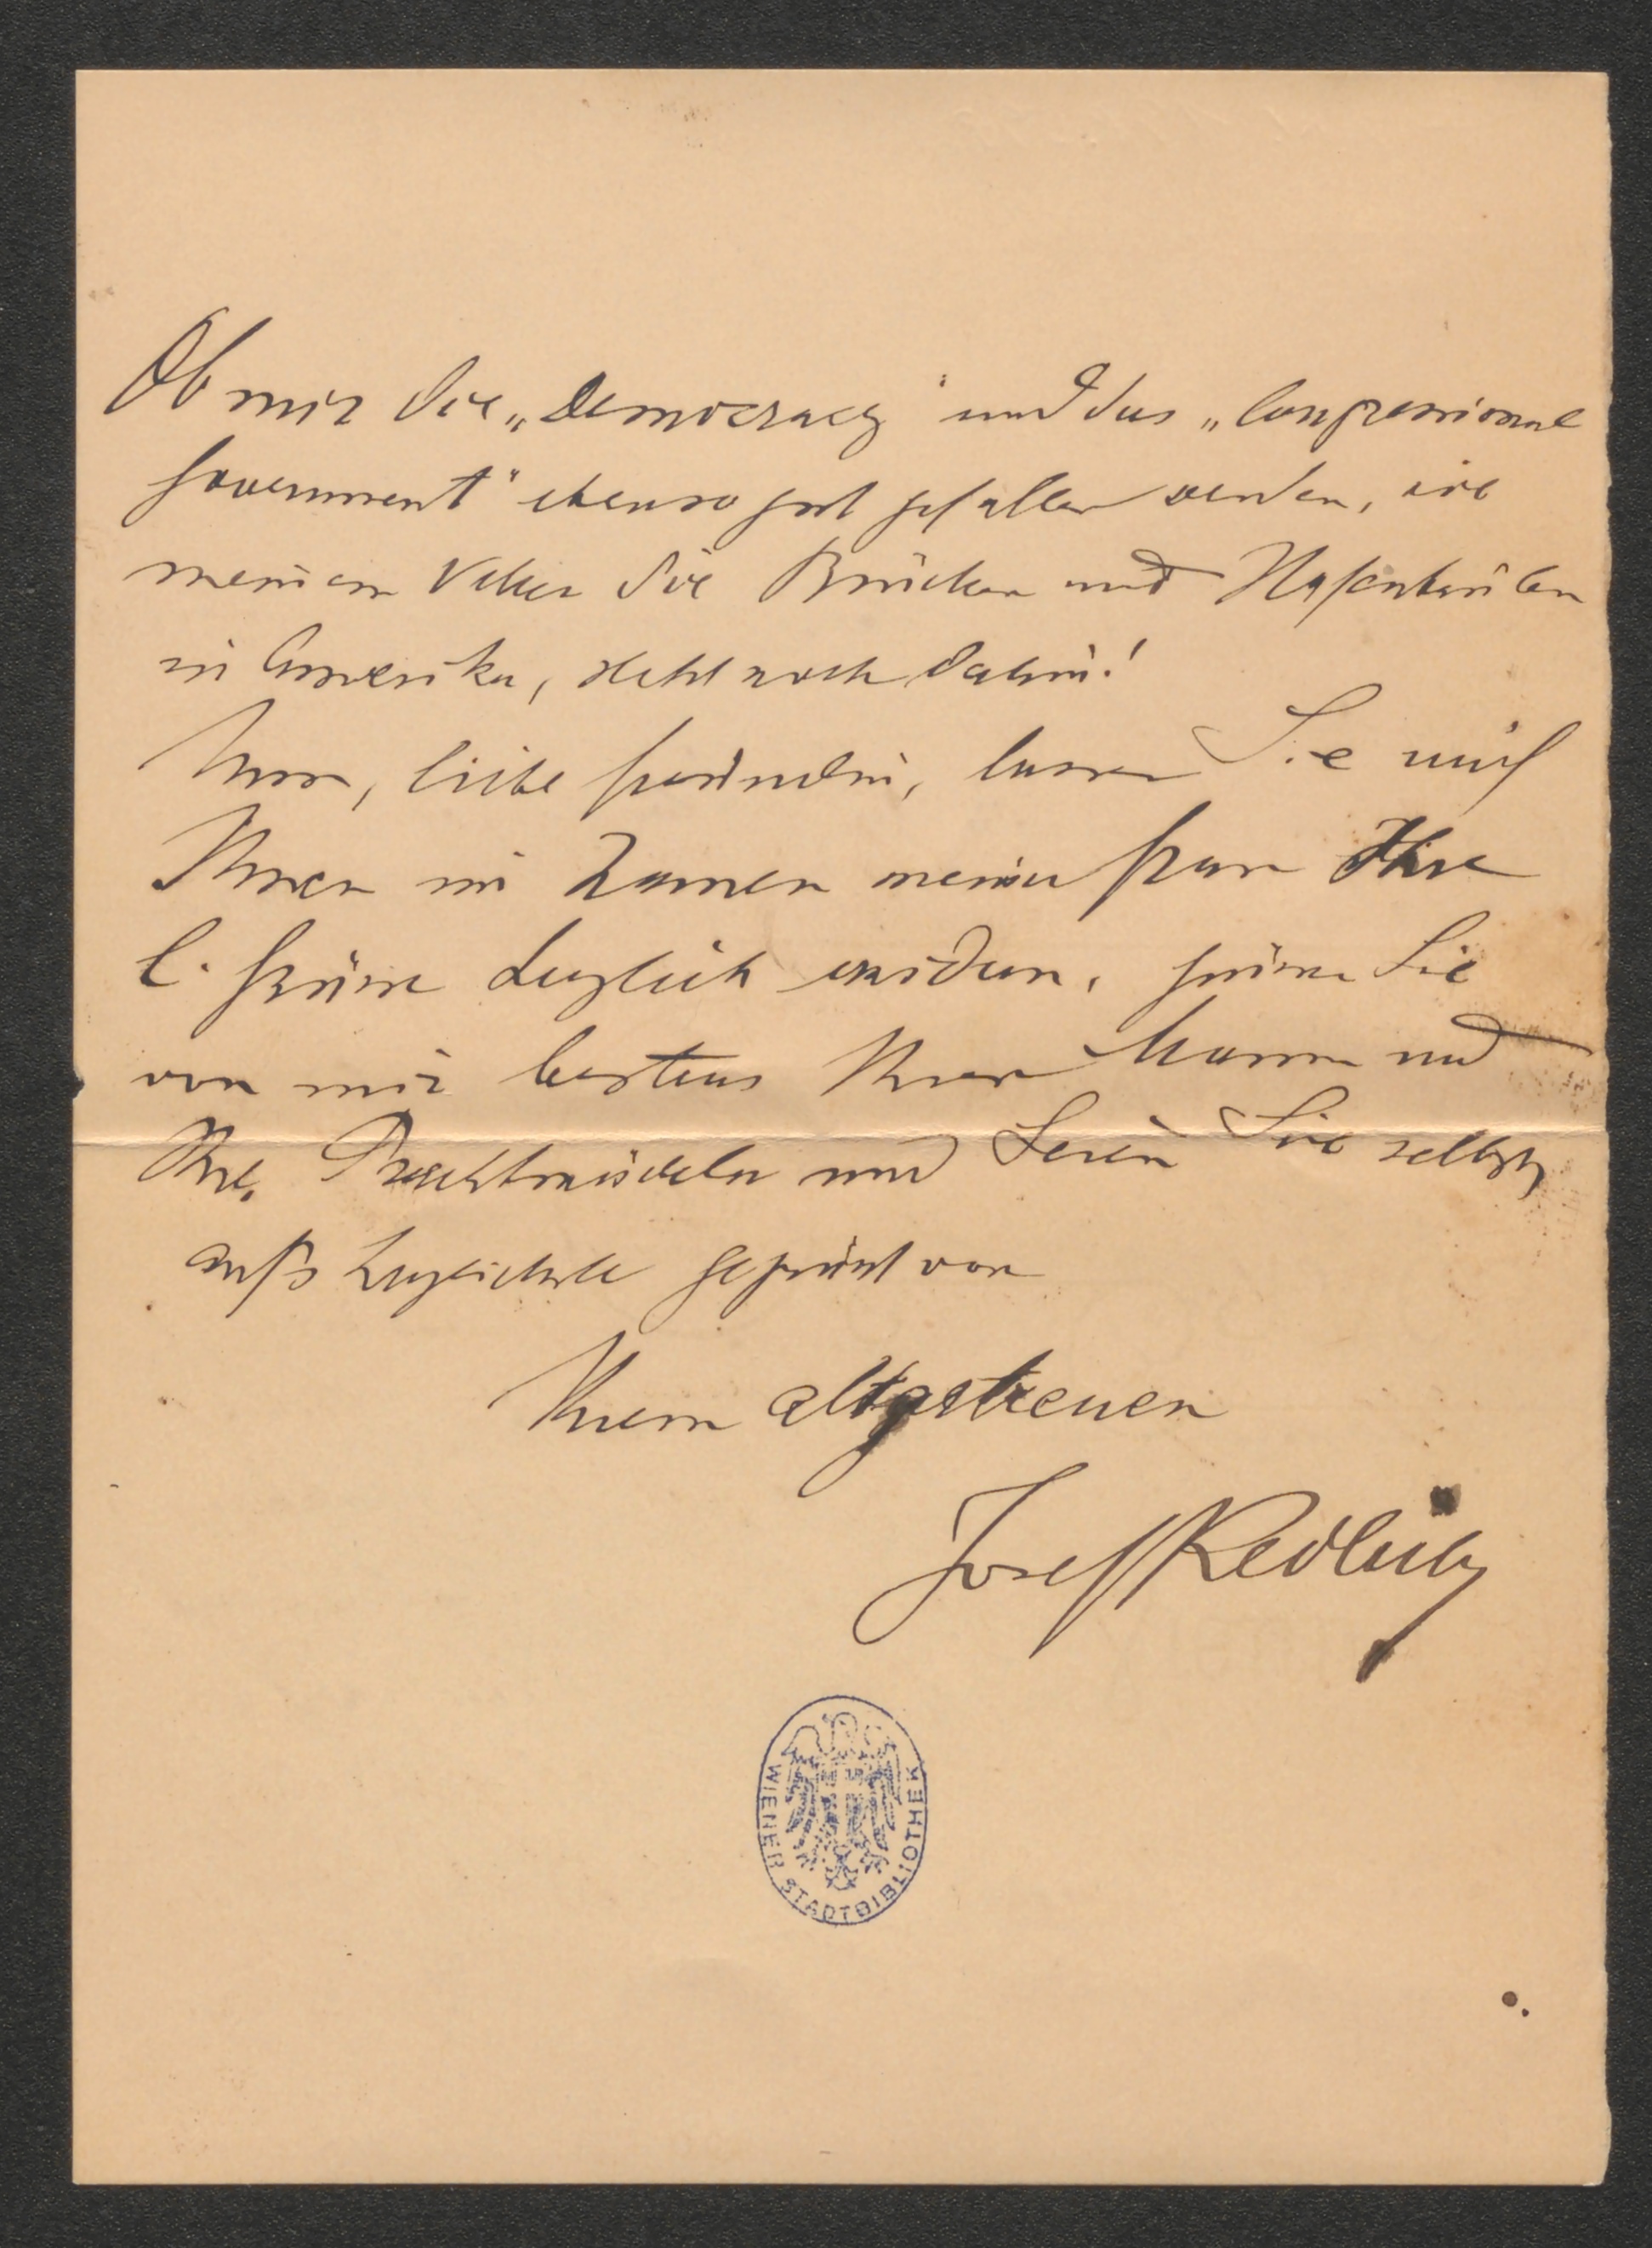 Ob mir die „Democracy" und das „Congressional
Government" ebenso gut gefallen werden, wie
meinem Vetter die Brücken und Hafenbauten
in Amerika, steht noch dahin!
Nun, liebe Freundin, lassen Sie mich
Ihnen im Namen meiner Frau Ihre
l. Grüße herzlich erwidern, grüßen Sie
von mir bestens Ihren Mann und
Ihre Prachtmädeln und seien Sie selbst
aufs herzlichste gegrüßt von
Ihrem altgetreuen
Josef Redlich
WIENER STADTBIBLIOTHEK